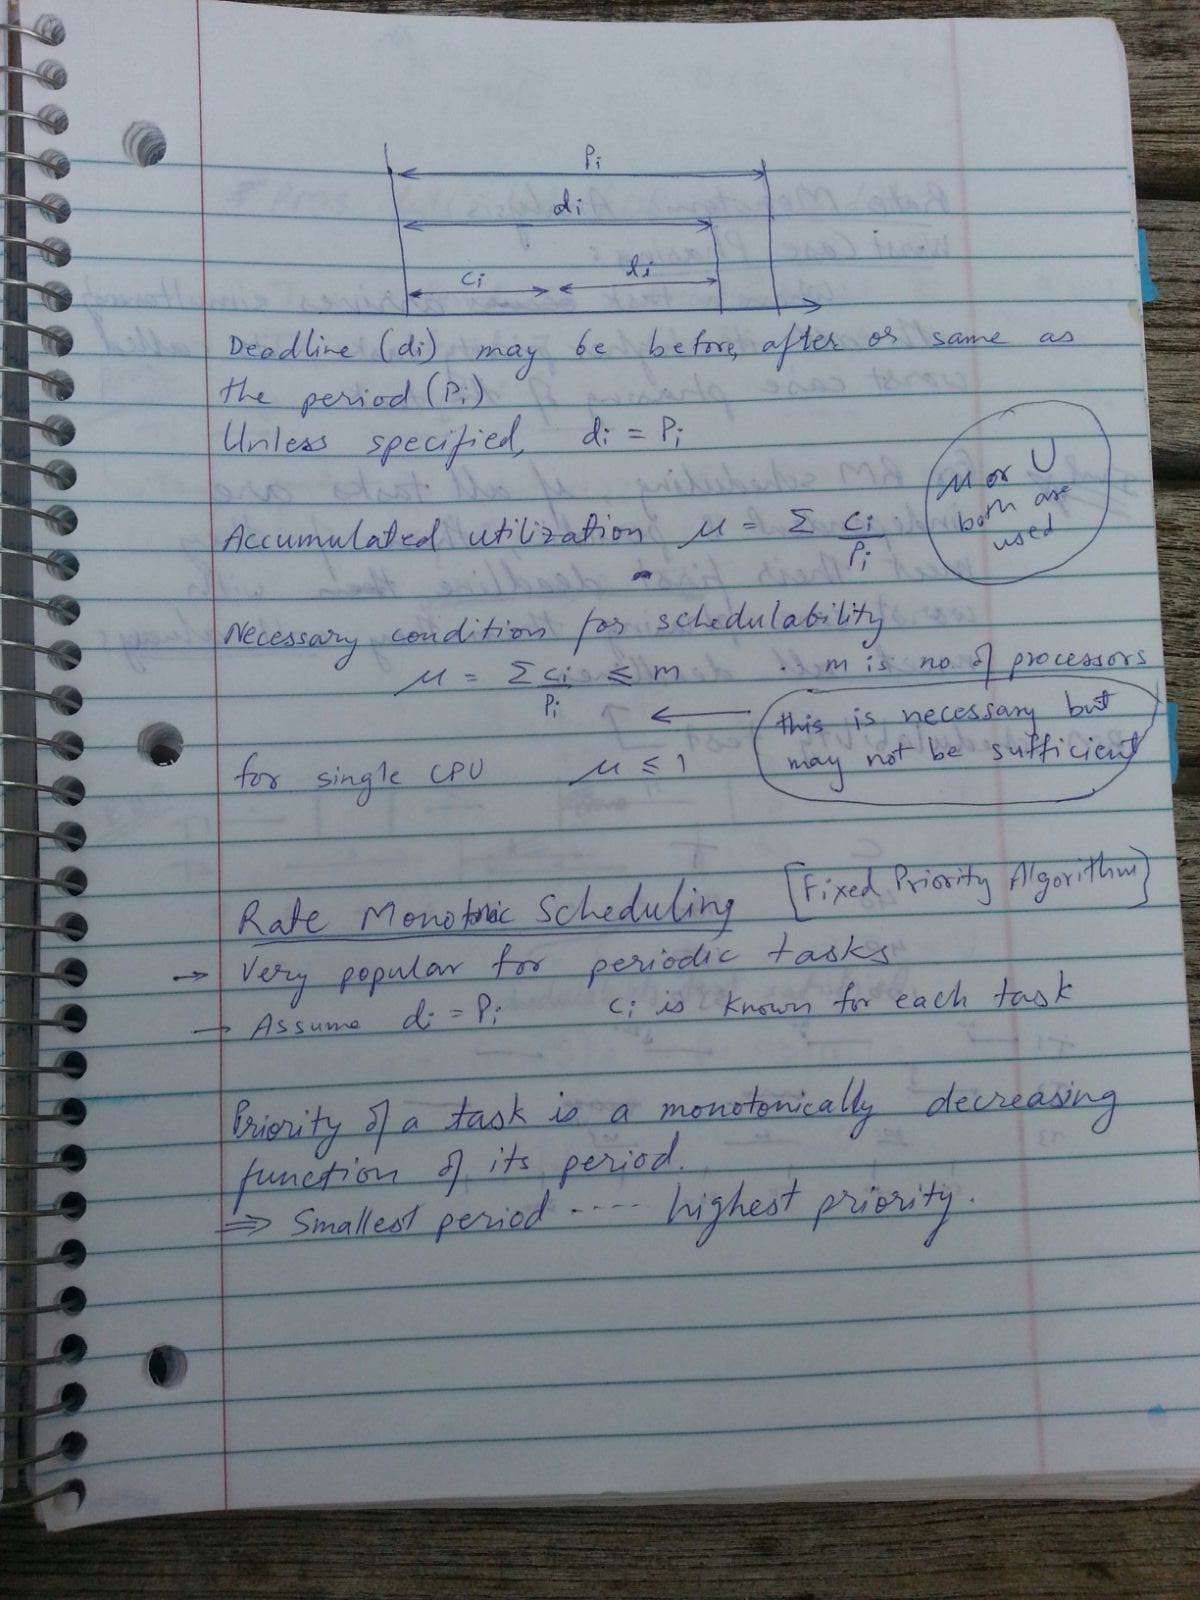 Pi
di
ci li
Deadline (di) may be before, after or same as
the period (Pi)
Unless specified, di = Pi
μ or U
both are
used
Accumulated utilization μ = Σ ci/Pi
Necessary condition for schedulability
μ = Σ ci/Pi ≤ m ∴ m is no. of processors
this is necessary but
may not be sufficient
for single CPU μ ≤ 1
Rate Monotonic Scheduling [Fixed Priority Algorithm]
→ Very popular for periodic tasks
→ Assume di = Pi ci is known for each task
Priority of a task is a monotonically decreasing
function of its period.
⇒ Smallest period ---- highest priority.